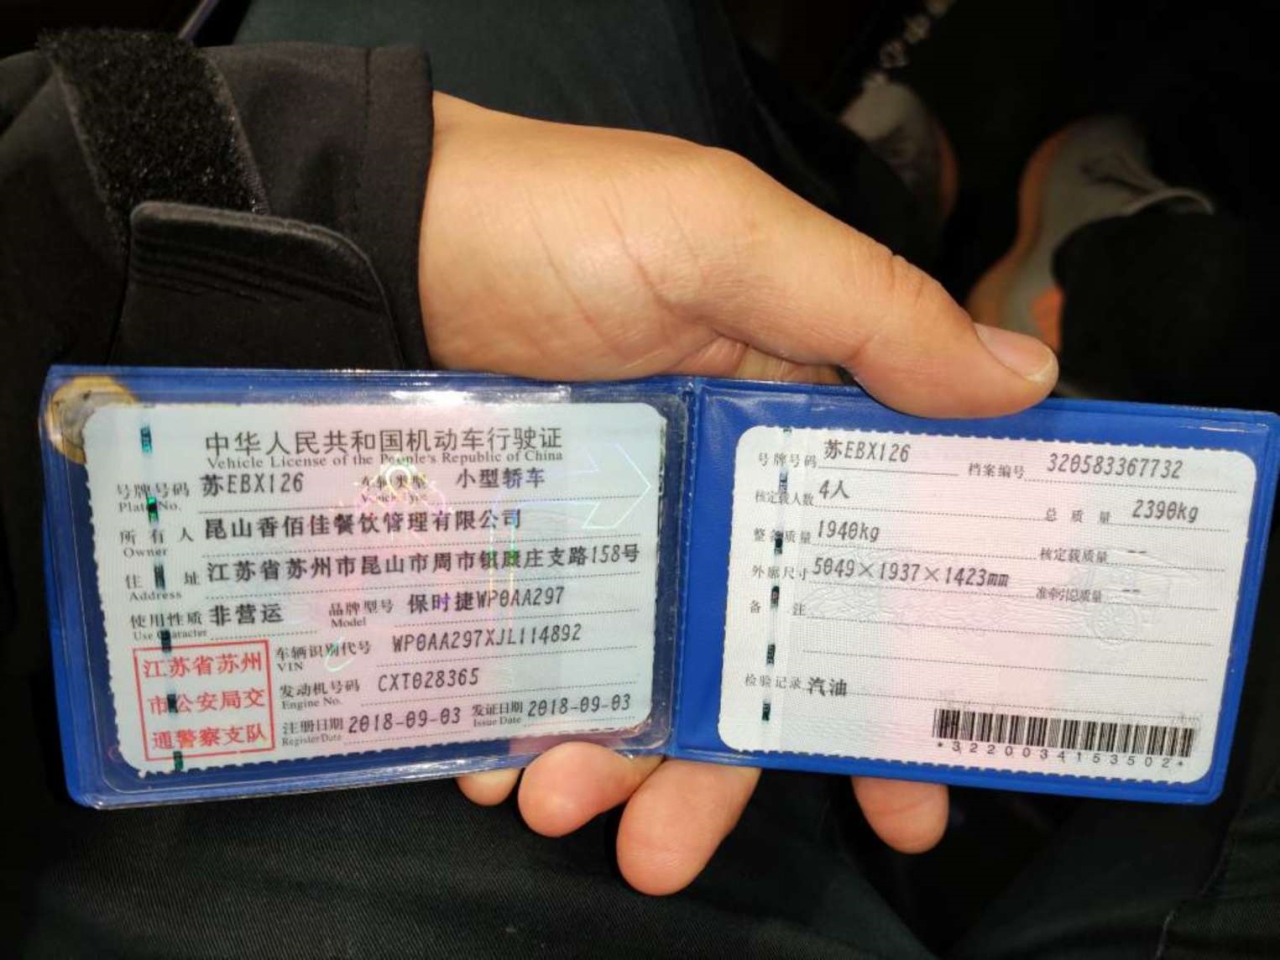 中华人民共和国机动车行驶证
Vehicle License of the People's Republic of China
号牌号码 苏EBX126 车辆类型 小型轿车
Plate No. Vehicle Type
所有人 昆山香佰佳餐饮管理有限公司
Owner
住址 江苏省苏州市昆山市周市镇顾庄支路158号
Address
使用性质 非营运 品牌型号 保时捷WP0AA297
Use Character Model
江苏省苏州
市公安局交
通警察支队
车辆识别代号 WP0AA297XJL114892
VIN
发动机号码 CXT028365
Engine No.
注册日期 2018-09-03 发证日期 2018-09-03
Register Date Issue Date
号牌号码 苏EBX126 档案编号 320583367732
核定载人数 4人 总质量 2390kg
整备质量 1940kg 核定载质量 --
外廓尺寸 5049×1937×1423mm 准牵引总质量 --
备注
检验记录 汽油
*3220034153502*